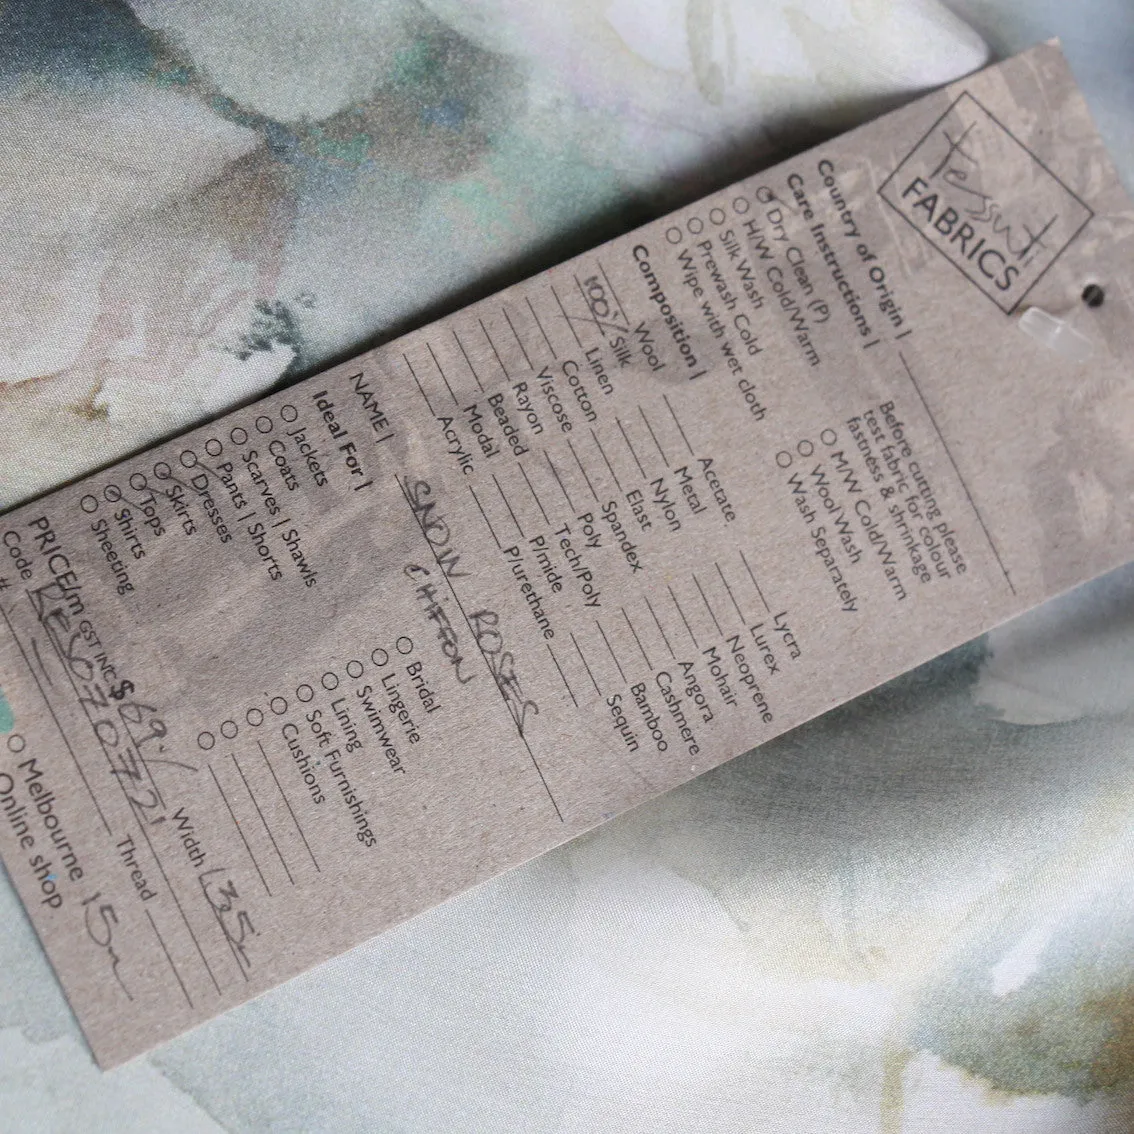 Tessuti
FABRICS
Country of Origin |
Care Instructions |
Dry Clean (P)
H/W Cold/Warm
Silk Wash
Prewash Cold
Wipe with wet cloth
Before cutting please
test fabric for colour
fastness & shrinkage
M/W Cold/Warm
Wool Wash
Wash Separately
Composition |
Wool
100% Silk
Linen
Cotton
Viscose
Rayon
Beaded
Modal
Acrylic
Acetate
Metal
Nylon
Elast
Spandex
Poly
Tech/Poly
P/mide
P/urethane
Lycra
Lurex
Neoprene
Mohair
Angora
Cashmere
Bamboo
Sequin
NAME | SNOW ROSES
CHIFFON
Ideal For |
Jackets
Coats
Scarves | Shawls
Pants | Shorts
Dresses
Skirts
Tops
Shirts
Sheeting
Bridal
Lingerie
Swimwear
Lining
Soft Furnishings
Cushions
PRICE/m GST INC $69.- Width 135
Code
Thread
#
Melbourne 15m
Online shop